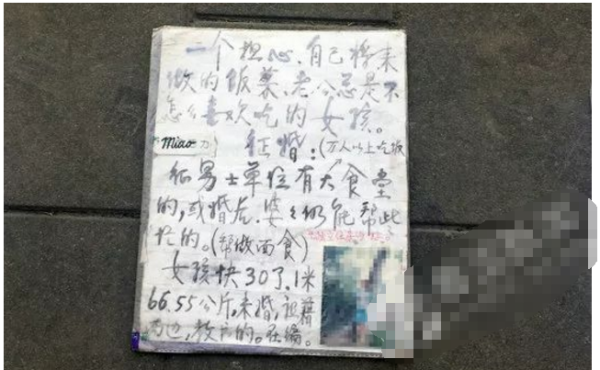 一个担心.自己将来
做的饭菜.老公总是不
怎么喜欢吃的女孩。
Miao
征婚:(万人以上吃饭
征男士单位有大食堂
的,或婚后.婆婆仍能帮此
忙的。(帮做面食)
女孩快30了.1米
66.55公斤,未婚,祖籍